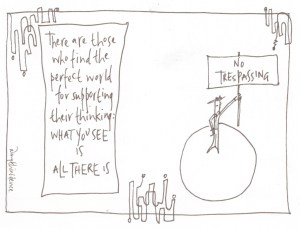 There are those
who find the
perfect world
for supporting
their thinking:
WHAT YOU SEE
IS
ALL THERE IS
NO
TRESPASSING